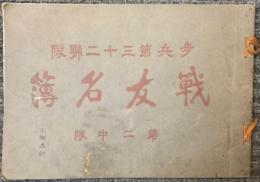 歩兵第三十二聯隊
戰友名簿
第二中隊